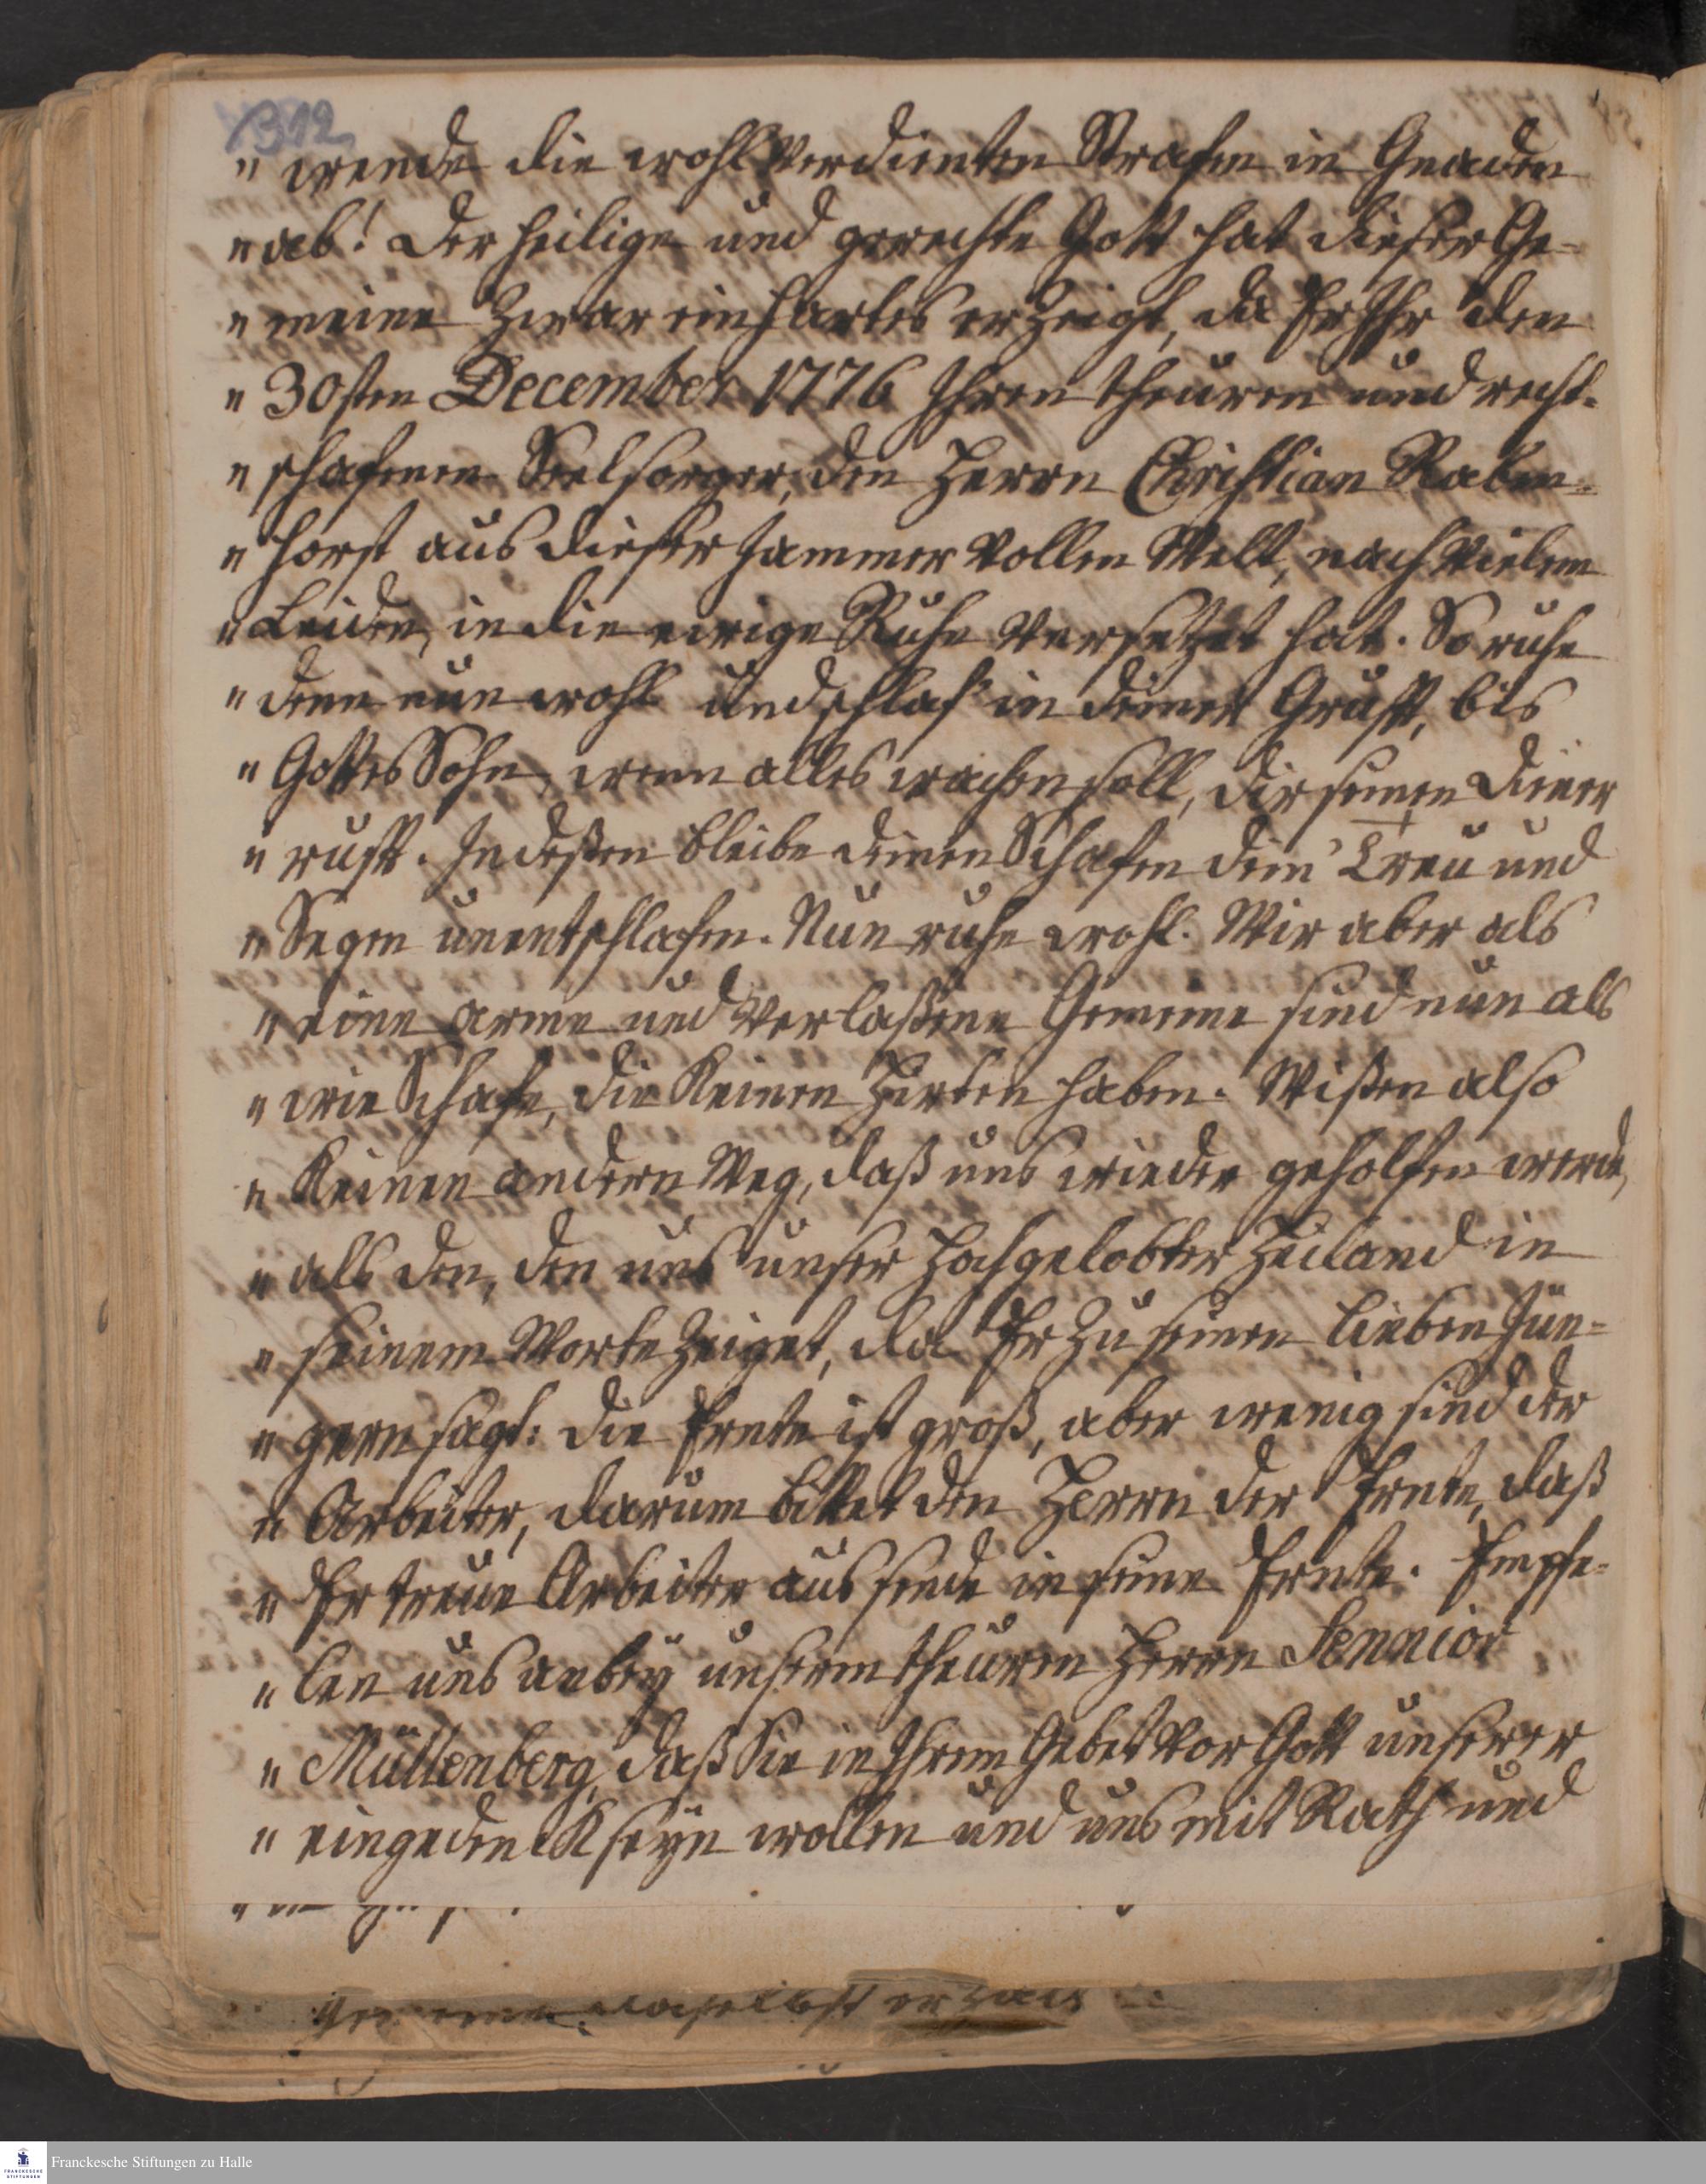 1312
" wende die wohl verdienten Strafen in Gnaden
" ab! Der heilige und gerechte Gott hat dieser Ge-
" meine zwar ein hartes erzeigt, da Er Ihr den
" 30sten December 1776 Ihren theuren und recht-
" schafenen Seelsorger, den Herrn Christian Raben-
" horst aus dieser Jammer vollen Welt, nach vielem
" Leiden, in die ewige Ruhe versetzet hat. So ruhe
" denn nun wohl und schlaf in deiner Gruft, bis
" Gottes Sohn, wenn alles wachen soll, dir seinen Diener
" ruft. Indeßen bleibe deinen Schafen dein' Treu und
" Segen unentschlafen. Nun ruhe wohl. Wir aber als
" eine arme und verlaßene Gemeine sind nun als
" wie Schafe, die Keinen Hirten haben. Wißen also
" Keinen andern Weg, daß uns wieder geholfen werde,
" als den, den uns unser Hochgelobter Heiland in
" seinem Worte zeiget, da Er zu seinen lieben Jün-
" gern sagt: die Ernte ist groß, aber wenig sind der
" Arbeiter, darum bittet den Herrn der Ernte, daß
" Er treue Arbeiter aussende in seine Ernte. Empfe-
" len uns anbey unserm theuren Herrn Sennior
" Müllenberg, daß Sie in Ihrem Gebet vor Gott unserer
" eingedenck seyn wollen und uns mit Rath und
daselbst
Franckesche Stiftungen zu Halle